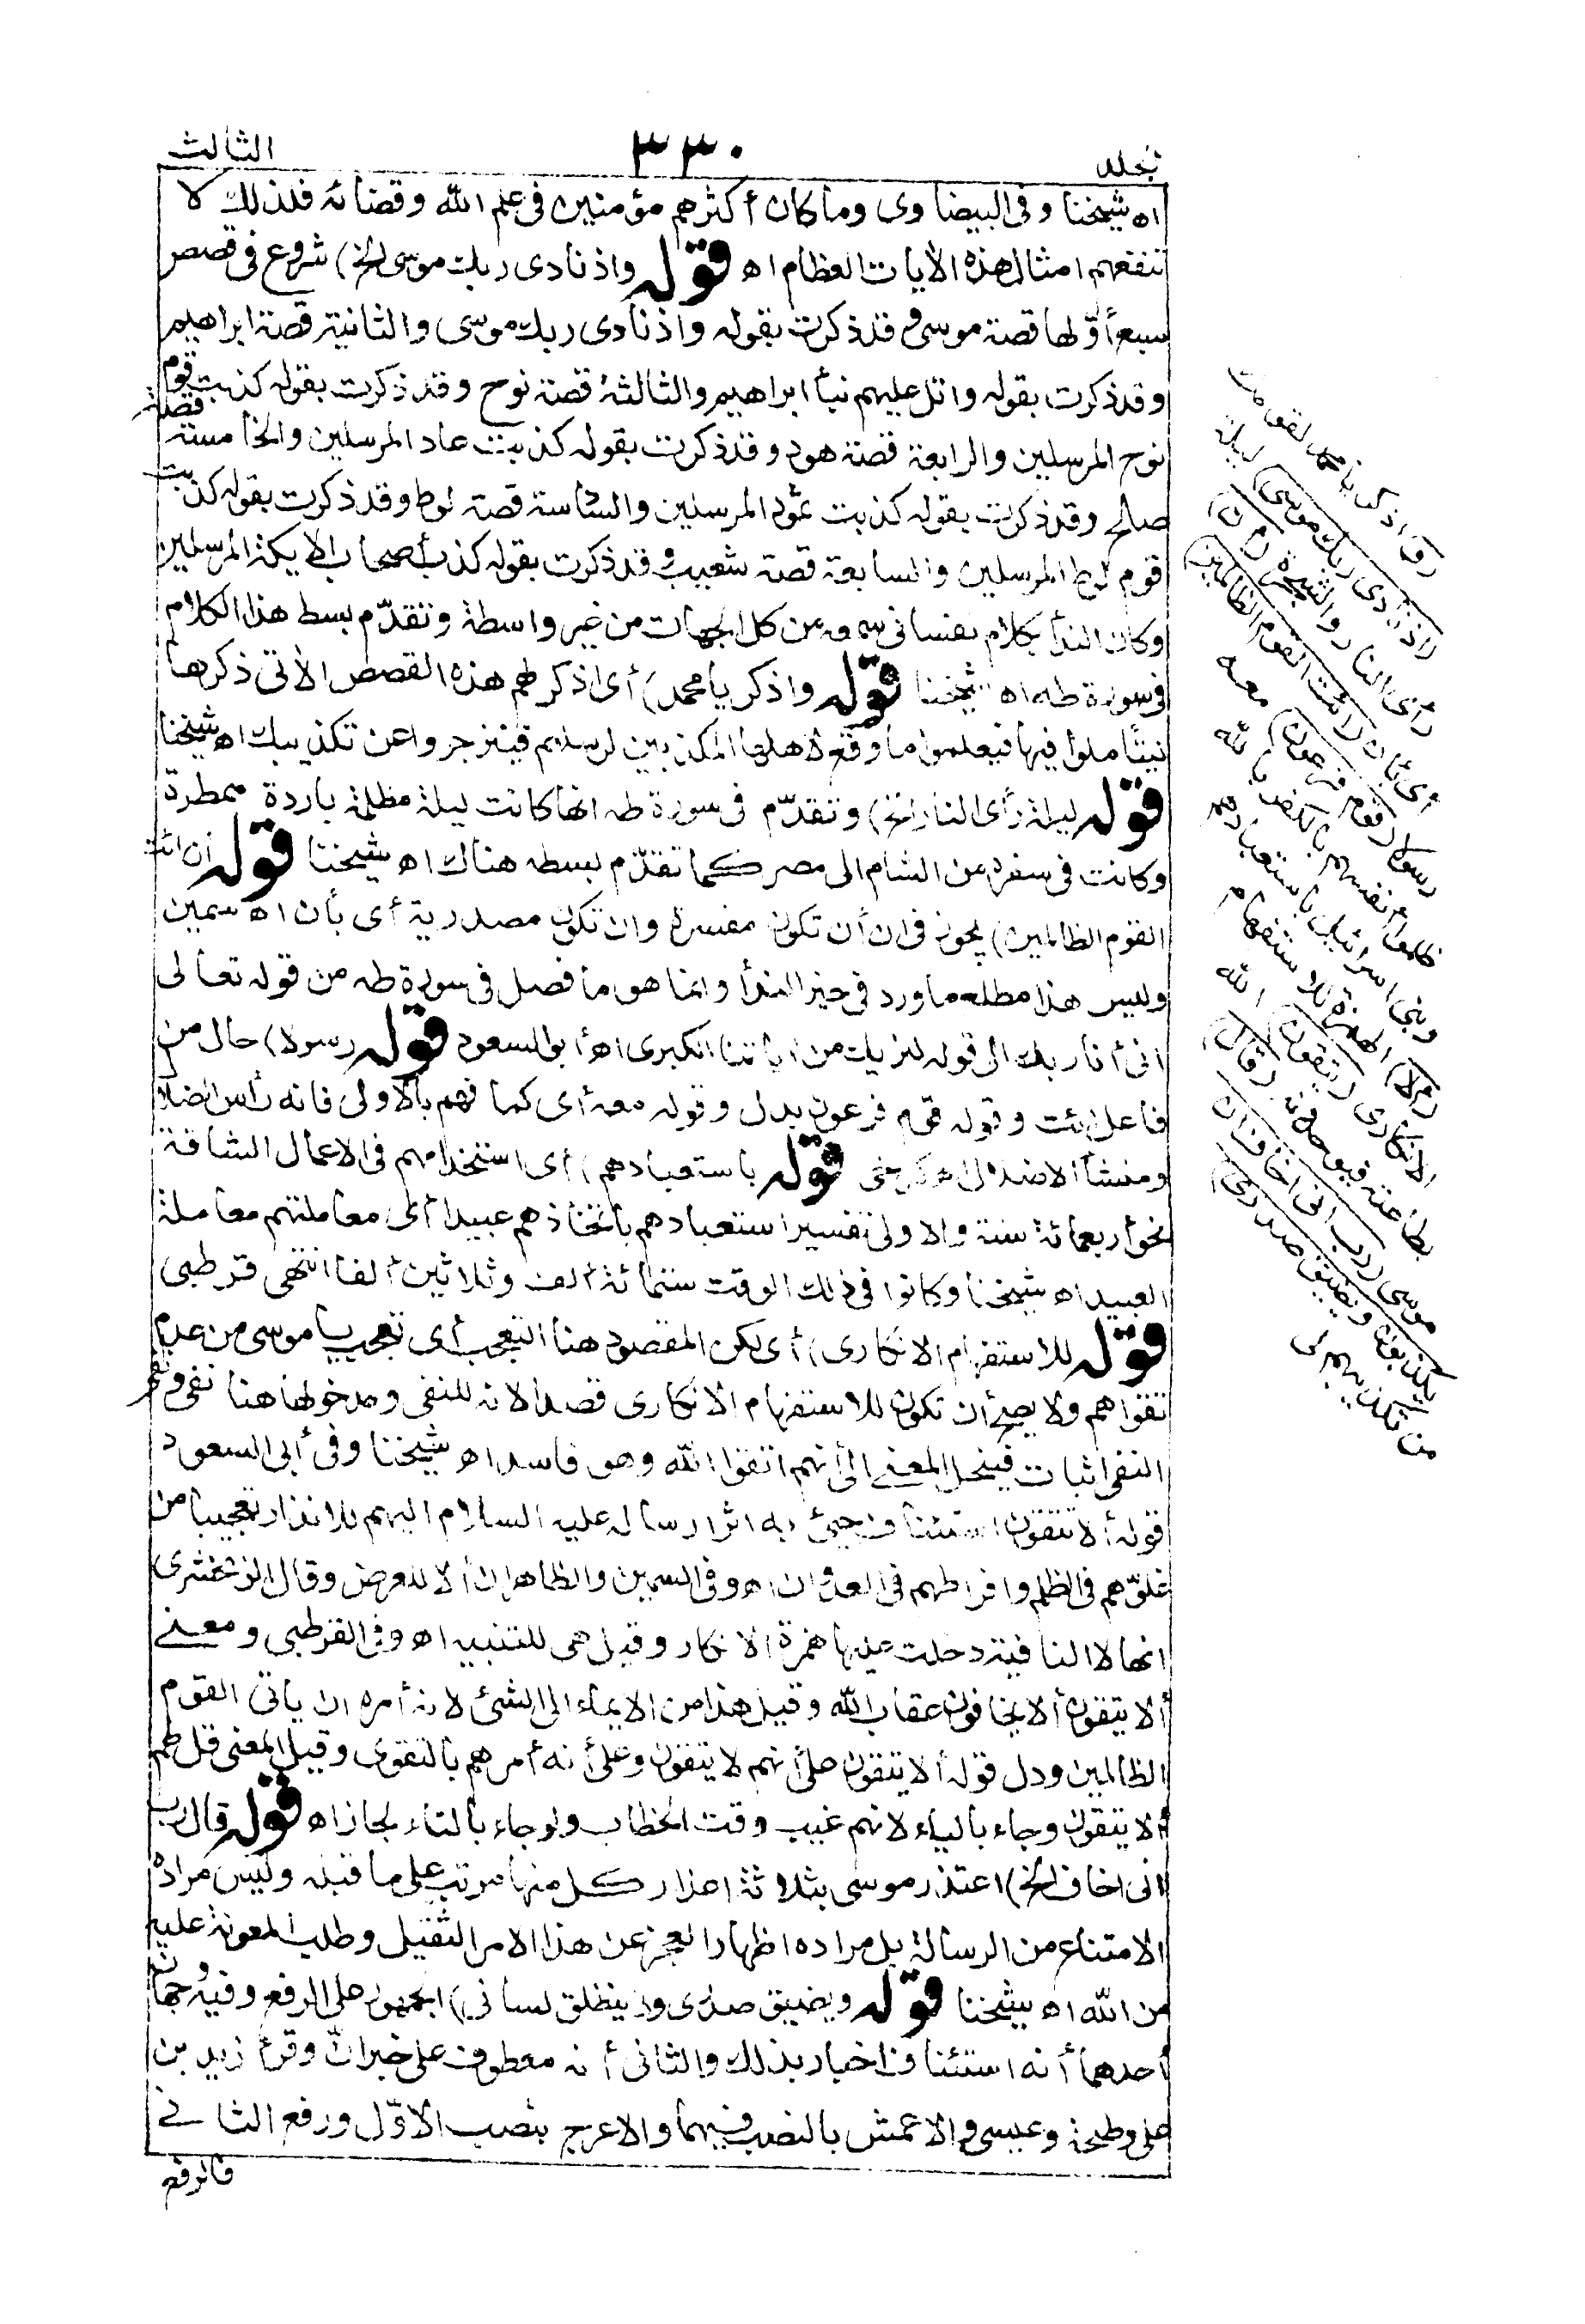 الثالث ٣٣٠ مجلد
اه شيخنا وفى البيضاوى وما كان أكثرهم مؤمنين فى علم الله وقضائه فلذلك لا
تنفعهم امثال هذه الأيات العظام اه قوله واذ نادى ربك موسى الخ) شروع فى قصص
سبع أوّلها قصة موسى وقد ذكرت بقوله واذ نادى ربك موسى والثانية قصة ابراهيم
وقد ذكرت بقوله واتل عليهم نبأ ابراهيم والثالثة قصة نوح وقد ذكرت بقوله كذبت قوم
نوح المرسلين والرابعة قصة هود وقد ذكرت بقوله كذبت عاد المرسلين والخامسة قصة
صالح وقد ذكرت بقوله كذبت ثمود المرسلين والسادسة قصة لوط وقد ذكرت بقوله كذبت
قوم لوط المرسلين والسابعة قصة شعيب وقد ذكرت بقوله كذب أصحاب الايكة المرسلين
وكان الندأ بكلام نفسانى سمعه من كل الجهات من غير واسطة وتقدّم بسط هذا الكلام
فى سورة طه اه شيخنا قوله واذكر يا محمد) أى اذكر لهم هذه القصص الأتى ذكرها
ليتأملوا فيها فيعلموا ما وقع لأهلها المكذبين لرسلهم فينزجروا عن تكذيبك اه شيخنا
قوله ليلة رأى النار الخ) وتقدّم فى سورة طه انها كانت ليلة مظلمة باردة ممطرة
وكانت فى سفره من الشام الى مصر كما تقدّم بسطه هناك اه شيخنا قوله أن ائت
القوم الظالمين) يجوز فى ان أن تكون مفسرة وان تكون مصدرية أى بأن اه سمين
وليس هذا مطلع ما ورد فى حيز الندأ وانما هو ما فصل فى سورة طه من قوله تعالى
انى أنا ربك الى قوله لنريك من اياتنا الكبرى اه أبو السعود قوله رسولا) حال من
فاعل ائت وقوله قوم فرعون بدل وقوله معه أى كما فهم بالاولى فانه رأس الضلا
ومنشأ الاضلال اه كرخى قوله باستعبادهم) أى استخدامهم فى الاعمال الشاقة
نحو أربعمائة سنة والاولى تفسير استعبادهم باتخاذهم عبيدا أى معاملتهم معاملة
العبيد اه شيخنا وكانوا فى ذلك الوقت ستمائة ألف وثلاثين ألفا انتهى قرطبى
قوله للاستفهام الانكارى) أى لكن المقصود هنا التعجب أى تعجب يا موسى من عدم
تقواهم ولا يصح أن تكون للاستفهام الانكارى قصدا لانه للنفى ومدخولها هنا نفى ونفى
النفى اثبات فينحل المعنى الى أنهم اتقوا الله وهو فاسد اه شيخنا وفى أبى السعود
قوله ألا تتقون استئناف جىئ به اثر ارساله عليه السلام اليهم للانذار تعجيبا من
غلوّهم فى الظلم وافراطهم فى العدوان اه وفى السمين والظاهر ان ألا للعرض وقال الزمخشرى
انها لا النافية دخلت عليها همزة الانكار وقيل هى للتنبيه اه وفى القرطبى ومعنى
ألا يتقون ألا يخافون عقاب الله وقيل هذا من الايماء الى الشئ لانه أمره ان ياتى القوم
الظالمين ودل قوله ألا يتقون على أنهم لا يتقون وعلى أنه أمرهم بالتقوى وقيل المعنى قل لهم
ألا يتقون وجاء بالياء لانهم غيب وقت الخطاب ولو جاء بالتاء لجاز اه قوله قال رب
انى اخاف الخ) اعتذر موسى بثلاثة اعذار كل منها مرتب على ما قبله وليس مراده
الامتناع من الرسالة بل مراده اظهار العجز عن هذا الامر الثقيل وطلب المعونة عليه
من الله اه شيخنا قوله ويضيق صدرى ولا ينطلق لسانى) الجمهور على الرفع وفيه وجهان
أحدهما أنه استئناف اخبار بذلك والثانى أنه معطوف على خبر ان وقرأ زيد بن
على وطلحة وعيسى والاعمش بالنصب فيهما والاعرج بنصب الاوّل ورفع الثانى
فالرفع
(و) اذكر يا محمد لقومك
(اذ نادى ربك موسى) ليلة
رأى النار والشجرة (ان)
أى بان (ائت القوم الظالمين)
رسولا (قوم فرعون) معه
ظلموا أنفسهم بالكفر بالله
وبنى اسرائيل باستعبادهم
(ألا) الهمزة للاستفهام
الانكارى (يتقون) الله
بطاعته فيوحدونه (قال)
موسى (رب انى اخاف ان
يكذبون ويضيق صدرى)
من تكذيبهم لى